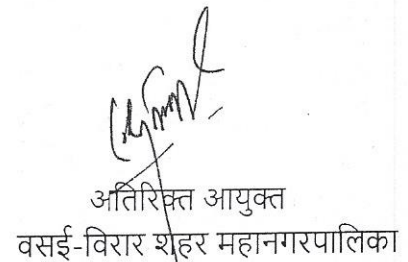 अतिरिक्त आयुक्त
वसई-विरार शहर महानगरपालिका